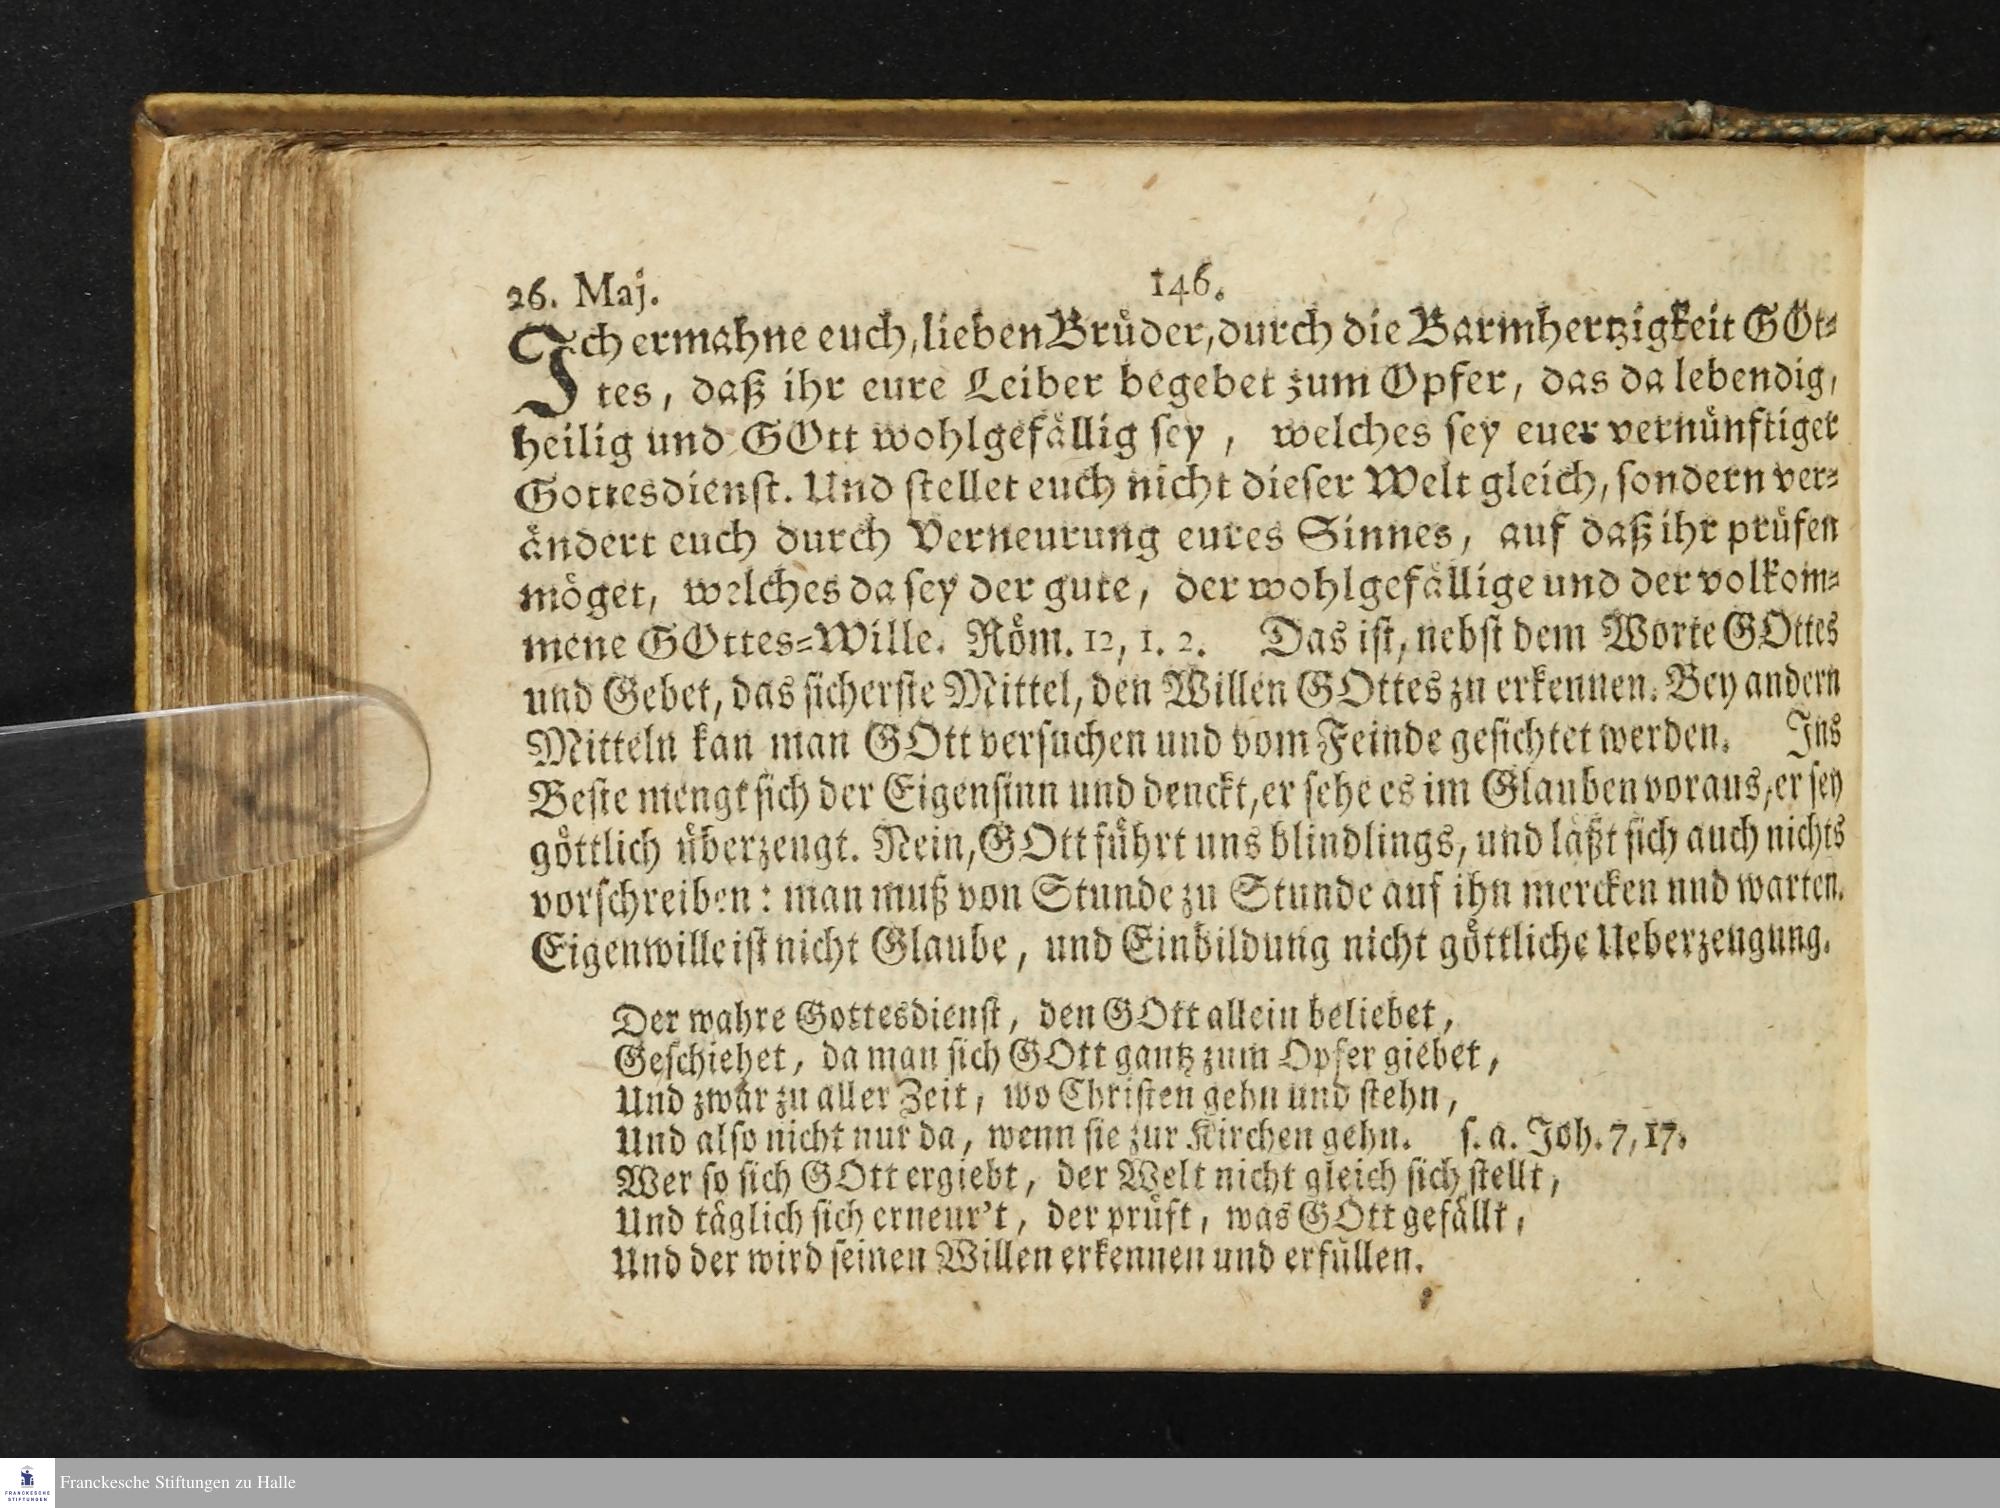 26. Maj.
146.
Ich ermahne euch, lieben Brüder, durch die Barmhertzigkeit GOt-
tes, daß ihr eure Leiber begebet zum Opfer, das da lebendig,
heilig und GOtt wohlgefällig sey, welches sey euer vernünftiger
Gottesdienst. Und stellet euch nicht dieser Welt gleich, sondern ver-
ändert euch durch Verneurung eures Sinnes, auf daß ihr prüfen
möget, welches da sey der gute, der wohlgefällige und der volkom-
mene GOttes-Wille. Röm. 12, 1. 2. Das ist, nebst dem Worte GOttes
und Gebet, das sicherste Mittel, den Willen GOttes zu erkennen. Bey andern
Mitteln kan man GOtt versuchen und vom Feinde gesichtet werden. Ins
Beste mengt sich der Eigensinn und denckt, er sehe es im Glauben voraus, er sey
göttlich überzeugt. Nein, GOtt führt uns blindlings, und läßt sich auch nichts
vorschreiben: man muß von Stunde zu Stunde auf ihn mercken und warten.
Eigenwille ist nicht Glaube, und Einbildung nicht göttliche Ueberzeugung.
Der wahre Gottesdienst, den GOtt allein beliebet,
Geschiehet, da man sich GOtt gantz zum Opfer giebet,
Und zwar zu aller Zeit, wo Christen gehn und stehn,
Und also nicht nur da, wenn sie zur Kirchen gehn. s. a. Joh. 7, 17.
Wer so sich GOtt ergiebt, der Welt nicht gleich sich stellt,
Und täglich sich erneur't, der prüft, was GOtt gefällt,
Und der wird seinen Willen erkennen und erfüllen.
FRANCKESCHE
STIFTUNGEN
Franckesche Stiftungen zu Halle